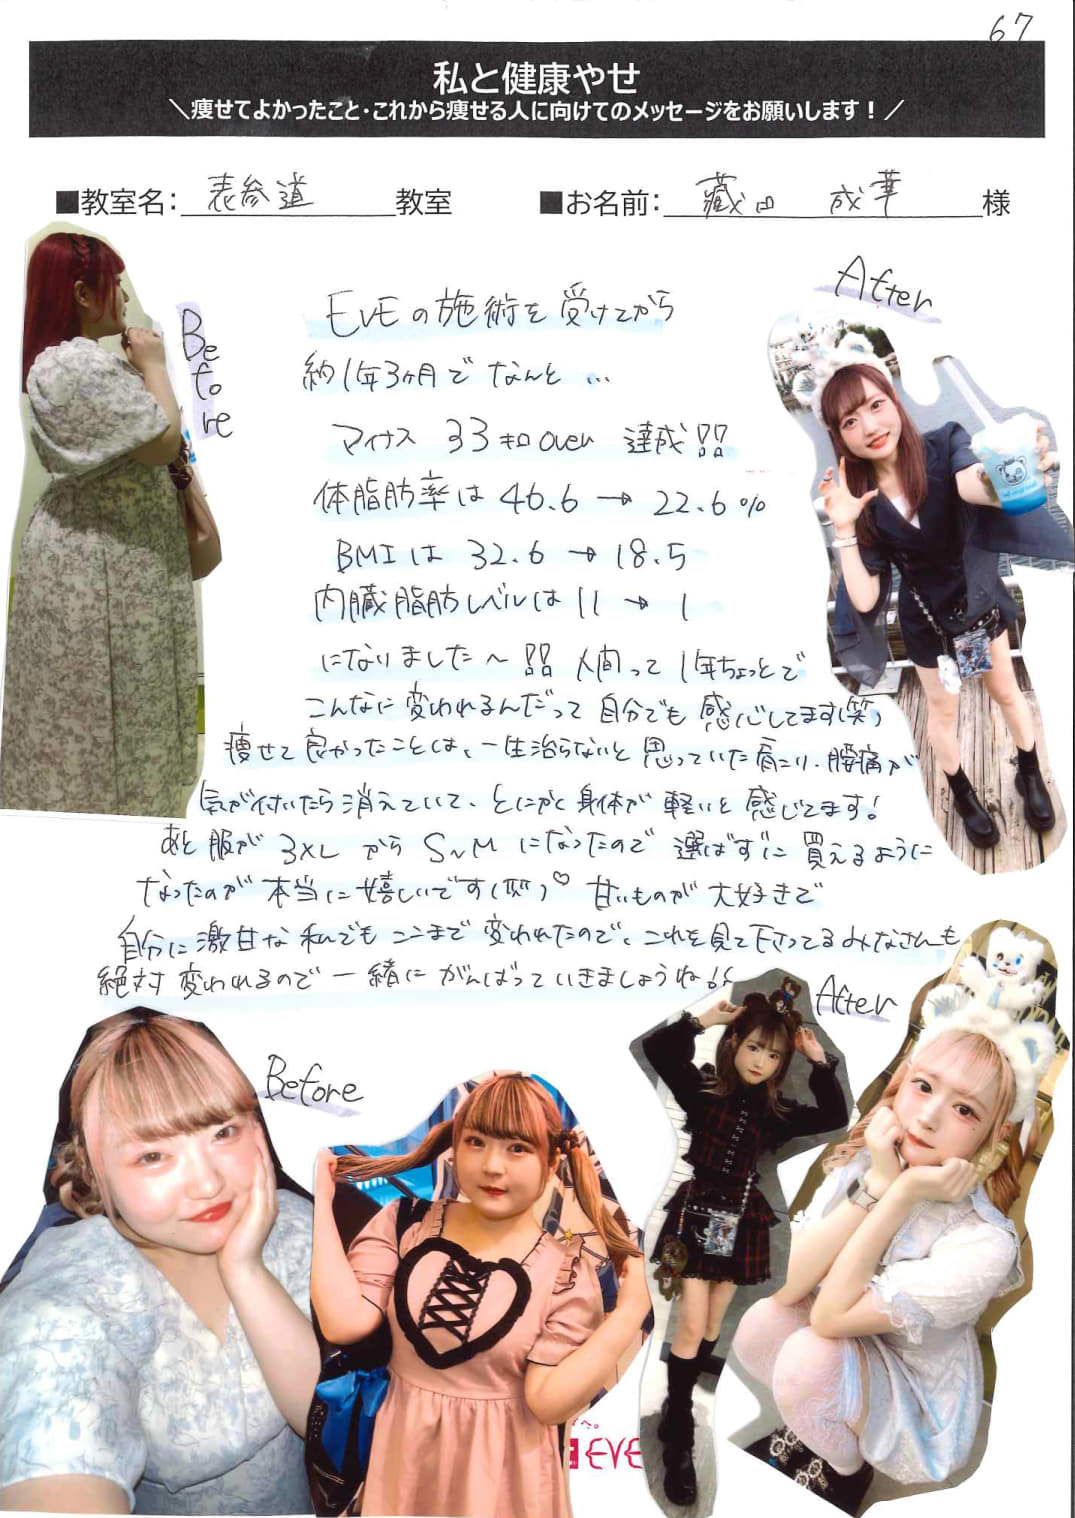 67
私と健康やせ
＼痩せてよかったこと・これから痩せる人に向けてのメッセージをお願いします！／
■教室名：表参道教室 ■お名前：藏田 成華様
After
Before
EVEの施術を受けてから
約1年3ヶ月でなんと…
マイナス 33キロover 達成!!
体脂肪率は 46.6→22.6%
BMIは 32.6→18.5
内臓脂肪レベルは 11→1
になりました〜!! 人間って1年ちょっとで
こんなに変われるんだって自分でも感心してます(笑)
痩せて良かったことは、一生治らないと思っていた肩こり、腰痛が
気が付いたら消えていて、とにかく身体が軽いと感じてます!
あと服が3XLからS~Mになったので選ばずに買えるように
なったのが本当に嬉しいです(笑)♡ 甘いものが大好きで
自分に激甘な私でもここまで変われたので、これを見て下さってるみなさんも
絶対変われるので一緒にがんばっていきましょうね!!
After
Before
へ。
EVE